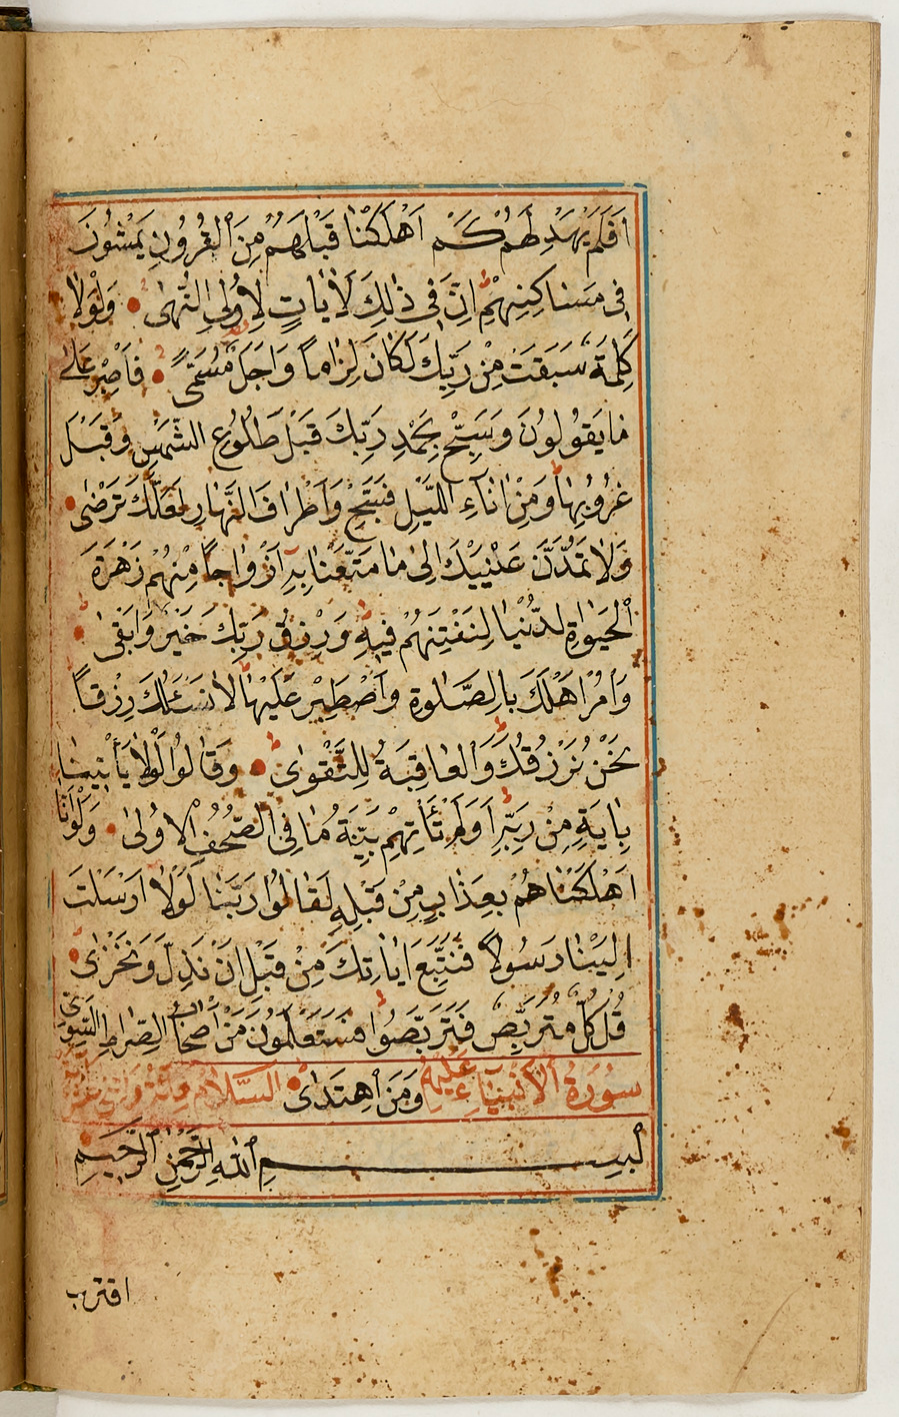 اَفَلَمْ يَهْدِ لَهُمْ كَمْ اَهْلَكْنَا قَبْلَهُمْ مِنَ الْقُرُونِ يَمْشُونَ
فِى مَسَاكِنِهِمْ اِنَّ فِى ذٰلِكَ لَاٰيَاتٍ لِاُولِى النُّهٰى وَلَوْلَا
كَلِمَةٌ سَبَقَتْ مِنْ رَبِّكَ لَكَانَ لِزَامًا وَاَجَلٌ مُسَمًّى فَاصْبِرْ عَلٰى
مَا يَقُولُونَ وَسَبِّحْ بِحَمْدِ رَبِّكَ قَبْلَ طُلُوعِ الشَّمْسِ وَقَبْلَ
غُرُوبِهَا وَمِنْ اٰنَاءِ الَّيْلِ فَسَبِّحْ وَاَطْرَافَ النَّهَارِ لَعَلَّكَ تَرْضٰى
وَلَا تَمُدَّنَّ عَيْنَيْكَ اِلٰى مَا مَتَّعْنَا بِهِ اَزْوَاجًا مِنْهُمْ زَهْرَةَ
الْحَيٰوةِ الدُّنْيَا لِنَفْتِنَهُمْ فِيهِ وَرِزْقُ رَبِّكَ خَيْرٌ وَاَبْقٰى
وَاْمُرْ اَهْلَكَ بِالصَّلٰوةِ وَاصْطَبِرْ عَلَيْهَا لَا نَسْئَلُكَ رِزْقًا
نَحْنُ نَرْزُقُكَ وَالْعَاقِبَةُ لِلتَّقْوٰى وَقَالُوا لَوْلَا يَأْتِينَا
بِاٰيَةٍ مِنْ رَبِّهِ اَوَلَمْ تَأْتِهِمْ بَيِّنَةُ مَا فِى الصُّحُفِ الْاُولٰى وَلَوْ اَنَّا
اَهْلَكْنَاهُمْ بِعَذَابٍ مِنْ قَبْلِهِ لَقَالُوا رَبَّنَا لَوْلَا اَرْسَلْتَ
اِلَيْنَا رَسُولًا فَنَتَّبِعَ اٰيَاتِكَ مِنْ قَبْلِ اَنْ نَذِلَّ وَنَخْزٰى
قُلْ كُلٌّ مُتَرَبِّصٌ فَتَرَبَّصُوا فَسَتَعْلَمُونَ مَنْ اَصْحَابُ الصِّرَاطِ السَّوِىِّ
سُورَةُ الْاَنْبِيَاءِ عَلَيْهِمُ وَمَنِ اهْتَدٰى السَّلَامُ
بِسْمِ اللّٰهِ الرَّحْمٰنِ الرَّحِيمِ
اقترب